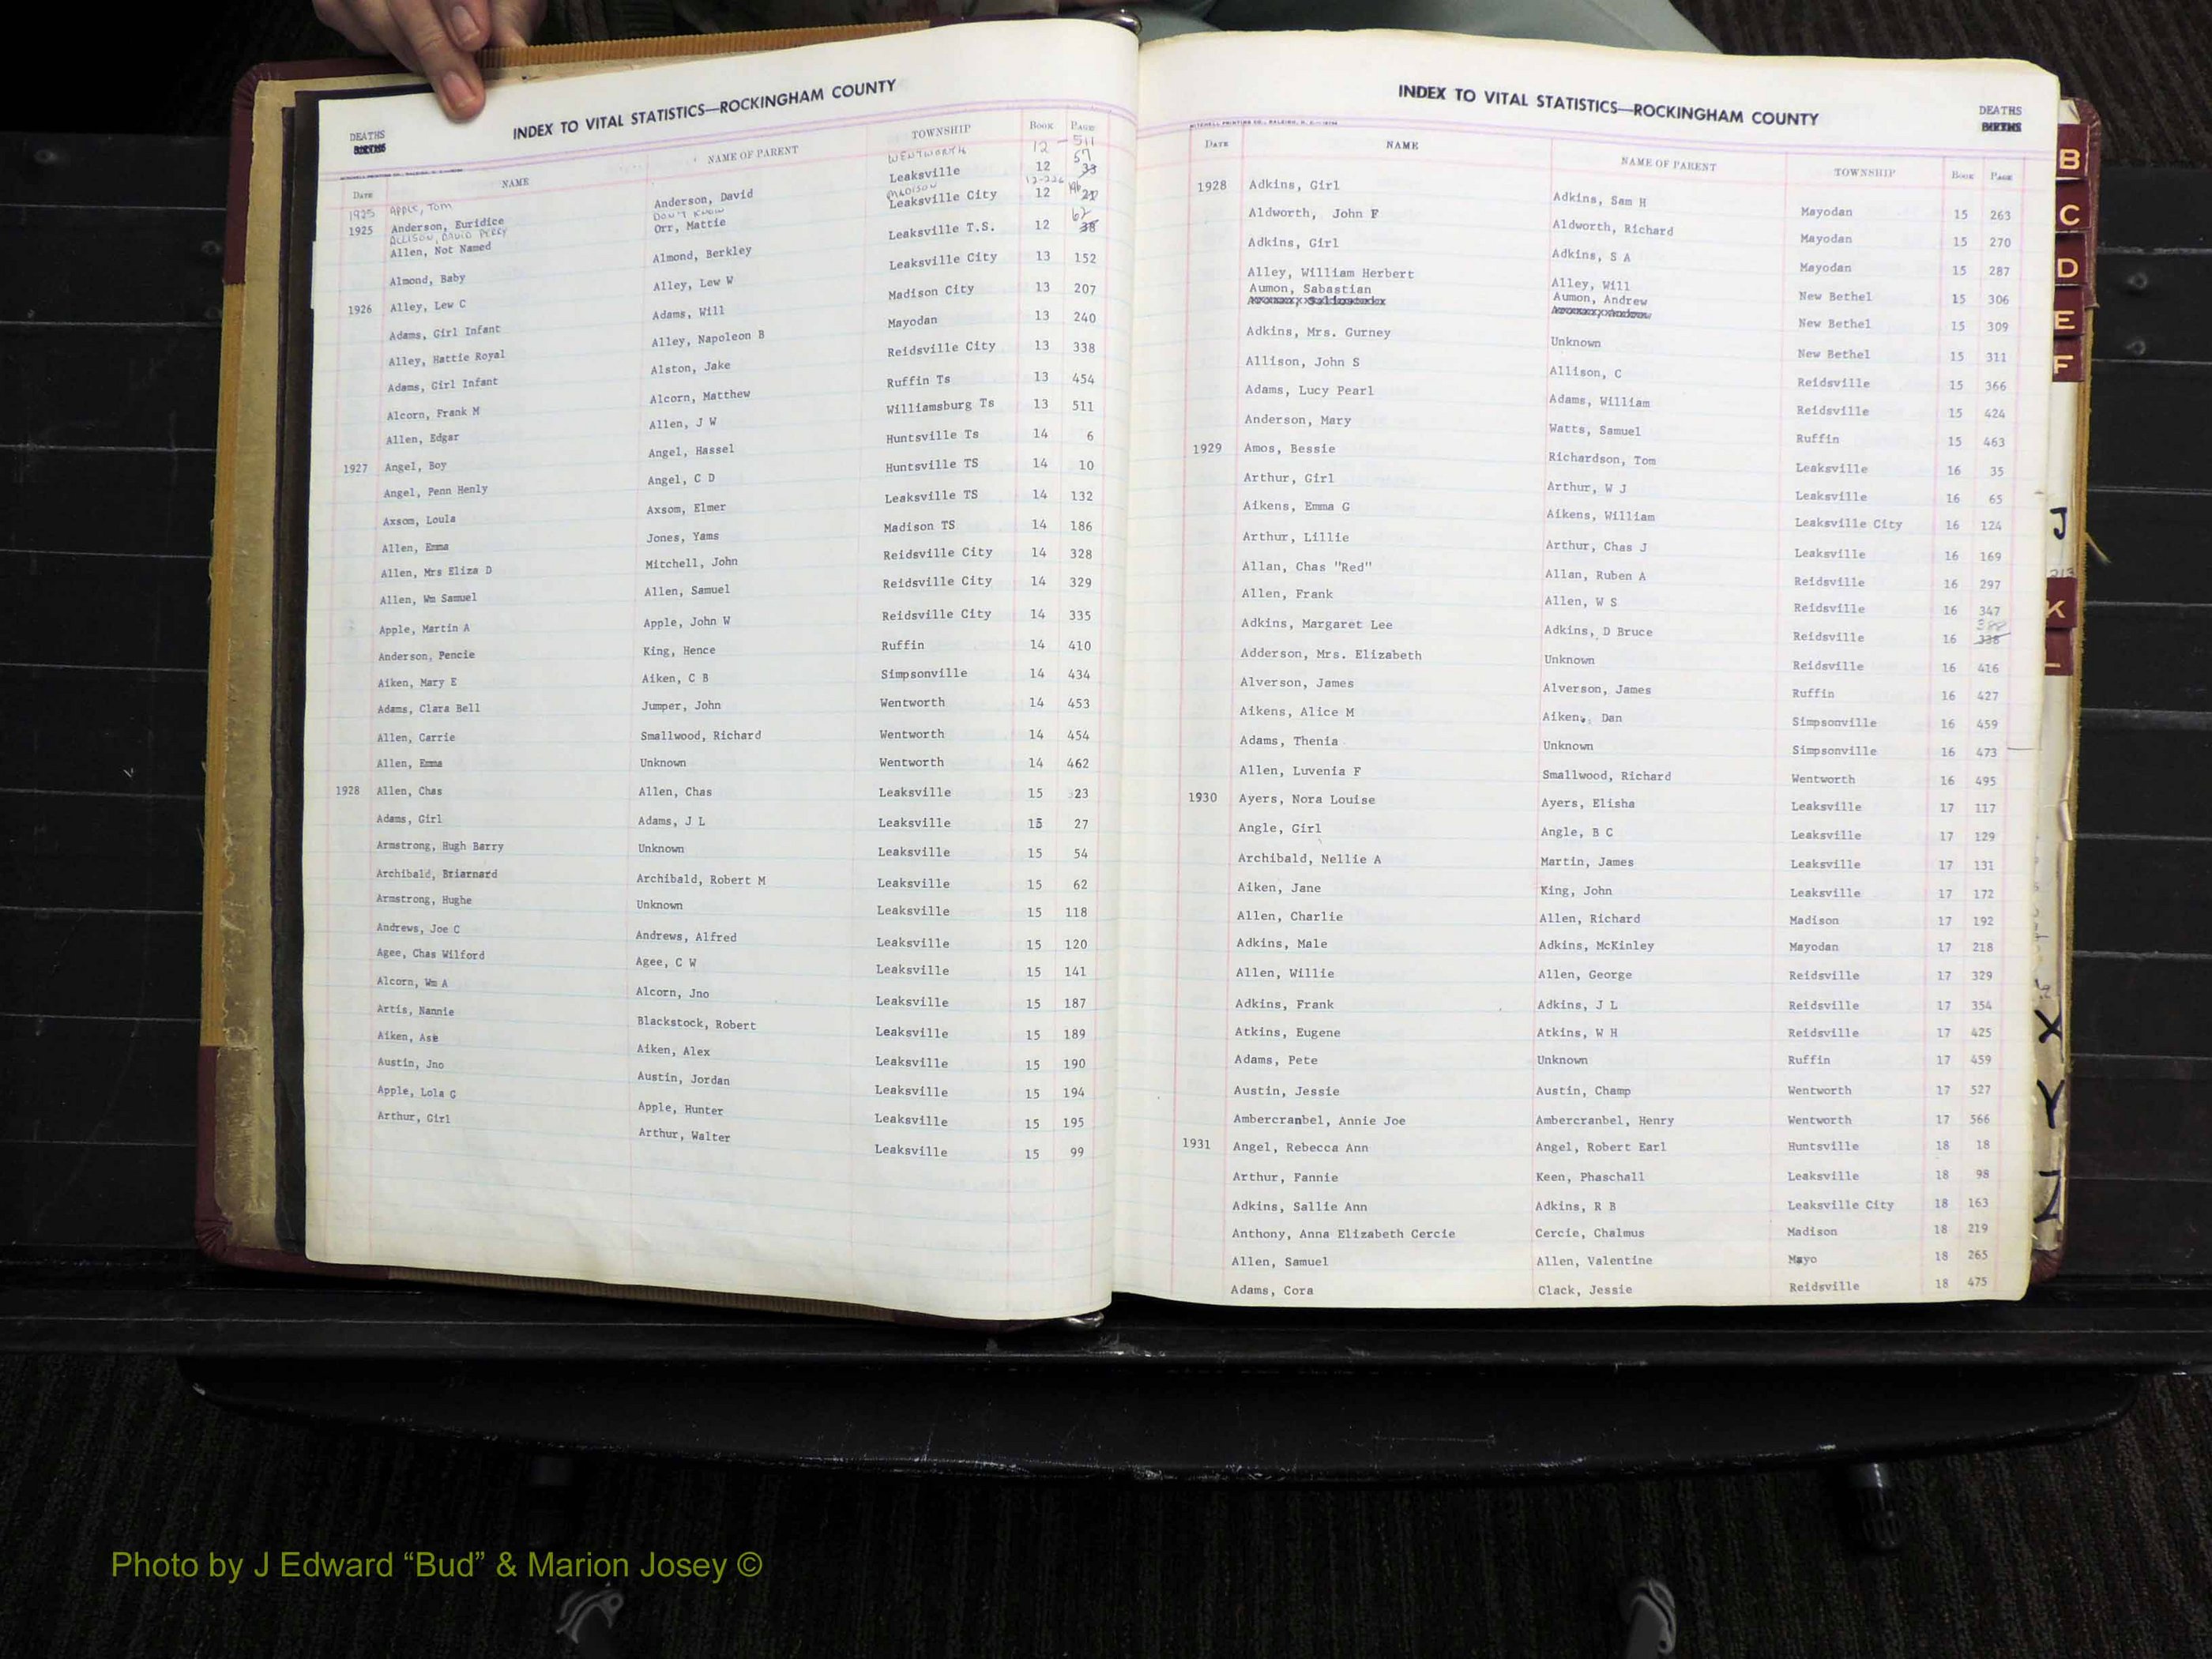 INDEX TO VITAL STATISTICS—ROCKINGHAM COUNTY
DEATHS
BIRTHS
Date NAME NAME OF PARENT TOWNSHIP Book Page
1925 APPLE, Tom WENTWORTH 12 - 511
1925 Anderson, Euridice Anderson, David Leaksville 12 33 57
ALLISON, DAVID PERRY DON'T KNOW MADISON 12-226
Allen, Not Named Orr, Mattie Leaksville City 12
Almond, Baby Almond, Berkley Leaksville T.S. 12 38 62
1926 Alley, Lew C Alley, Lew W Leaksville City 13 152
Adams, Girl Infant Adams, Will Madison City 13 207
Alley, Hattie Royal Alley, Napoleon B Mayodan 13 240
Adams, Girl Infant Alston, Jake Reidsville City 13 338
Alcorn, Frank M Alcorn, Matthew Ruffin Ts 13 454
Allen, Edgar Allen, J W Williamsburg Ts 13 511
1927 Angel, Boy Angel, Hassel Huntsville Ts 14 6
Angel, Penn Henly Angel, C D Huntsville TS 14 10
Axsom, Loula Axsom, Elmer Leaksville TS 14 132
Allen, Emma Jones, Yams Madison TS 14 186
Allen, Mrs Eliza D Mitchell, John Reidsville City 14 328
Allen, Wm Samuel Allen, Samuel Reidsville City 14 329
Apple, Martin A Apple, John W Reidsville City 14 335
Anderson, Pencie King, Hence Ruffin 14 410
Aiken, Mary E Aiken, C B Simpsonville 14 434
Adams, Clara Bell Jumper, John Wentworth 14 453
Allen, Carrie Smallwood, Richard Wentworth 14 454
Allen, Emma Unknown Wentworth 14 462
1928 Allen, Chas Allen, Chas Leaksville 15 23
Adams, Girl Adams, J L Leaksville 15 27
Armstrong, Hugh Barry Unknown Leaksville 15 54
Archibald, Briarnard Archibald, Robert M Leaksville 15 62
Armstrong, Hughe Unknown Leaksville 15 118
Andrews, Joe C Andrews, Alfred Leaksville 15 120
Agee, Chas Wilford Agee, C W Leaksville 15 141
Alcorn, Wm A Alcorn, Jno Leaksville 15 187
Artis, Nannie Blackstock, Robert Leaksville 15 189
Aiken, Ase Aiken, Alex Leaksville 15 190
Austin, Jno Austin, Jordan Leaksville 15 194
Apple, Lola G Apple, Hunter Leaksville 15 195
Arthur, Girl Arthur, Walter Leaksville 15 99
INDEX TO VITAL STATISTICS—ROCKINGHAM COUNTY
DEATHS
BIRTHS
MITCHELL PRINTING CO., RALEIGH, N. C.
Date NAME NAME OF PARENT TOWNSHIP Book Page
1928 Adkins, Girl Adkins, Sam H Mayodan 15 263
Aldworth, John F Aldworth, Richard Mayodan 15 270
Adkins, Girl Adkins, S A Mayodan 15 287
Alley, William Herbert Alley, Will New Bethel 15 306
Aumon, Sabastian Aumon, Andrew New Bethel 15 309
Adkins, Mrs. Gurney Unknown New Bethel 15 311
Allison, John S Allison, C Reidsville 15 366
Adams, Lucy Pearl Adams, William Reidsville 15 424
Anderson, Mary Watts, Samuel Ruffin 15 463
1929 Amos, Bessie Richardson, Tom Leaksville 16 35
Arthur, Girl Arthur, W J Leaksville 16 65
Aikens, Emma G Aikens, William Leaksville City 16 124
Arthur, Lillie Arthur, Chas J Leaksville 16 169
Allan, Chas "Red" Allan, Ruben A Reidsville 16 297
Allen, Frank Allen, W S Reidsville 16 347
Adkins, Margaret Lee Adkins, D Bruce Reidsville 16 338 388
Adderson, Mrs. Elizabeth Unknown Reidsville 16 416
Alverson, James Alverson, James Ruffin 16 427
Aikens, Alice M Aiken, Dan Simpsonville 16 459
Adams, Thenia Unknown Simpsonville 16 473
Allen, Luvenia F Smallwood, Richard Wentworth 16 495
1930 Ayers, Nora Louise Ayers, Elisha Leaksville 17 117
Angle, Girl Angle, B C Leaksville 17 129
Archibald, Nellie A Martin, James Leaksville 17 131
Aiken, Jane King, John Leaksville 17 172
Allen, Charlie Allen, Richard Madison 17 192
Adkins, Male Adkins, McKinley Mayodan 17 218
Allen, Willie Allen, George Reidsville 17 329
Adkins, Frank Adkins, J L Reidsville 17 354
Atkins, Eugene Atkins, W H Reidsville 17 425
Adams, Pete Unknown Ruffin 17 459
Austin, Jessie Austin, Champ Wentworth 17 527
Ambercranbel, Annie Joe Ambercranbel, Henry Wentworth 17 566
1931 Angel, Rebecca Ann Angel, Robert Earl Huntsville 18 18
Arthur, Fannie Keen, Phaschall Leaksville 18 98
Adkins, Sallie Ann Adkins, R B Leaksville City 18 163
Anthony, Anna Elizabeth Cercie Cercie, Chalmus Madison 18 219
Allen, Samuel Allen, Valentine Mayo 18 265
Adams, Cora Clack, Jessie Reidsville 18 475
B
C
D
E
F
J
K
L
X
Y
Z
Photo by J Edward “Bud” & Marion Josey ©